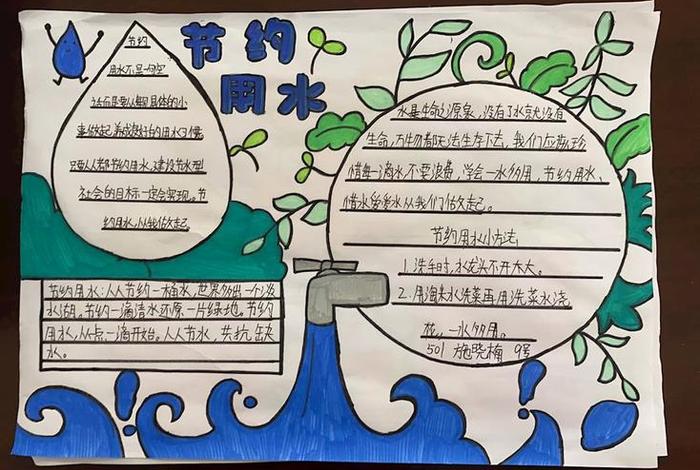 节约
用水
节约
用水不是一句空
话而是要从
具体的小
事做起,养成良好的用水习惯
只要人人都节约用水,建设节水型
社会的目标一定会实现。节
约用水,从我做起。
节约用水:人人节约一桶水,世界多出一个淡
水湖。节约一滴清水还原一片绿地。节约
用水,从点一滴开始。人人节水,共抗缺
水。
水是生命之源泉,没有了水就没有
生命,万物都无法生存下去,我们应
惜每一滴水不要浪费,学会一水多用,节约用水、
惜水爱水从我们做起。
节约用水小方法:
1.洗手时,水龙头不开太大。
2.用淘米水洗菜再用洗菜水浇
花,一水多用。
501 施晓楠 9号